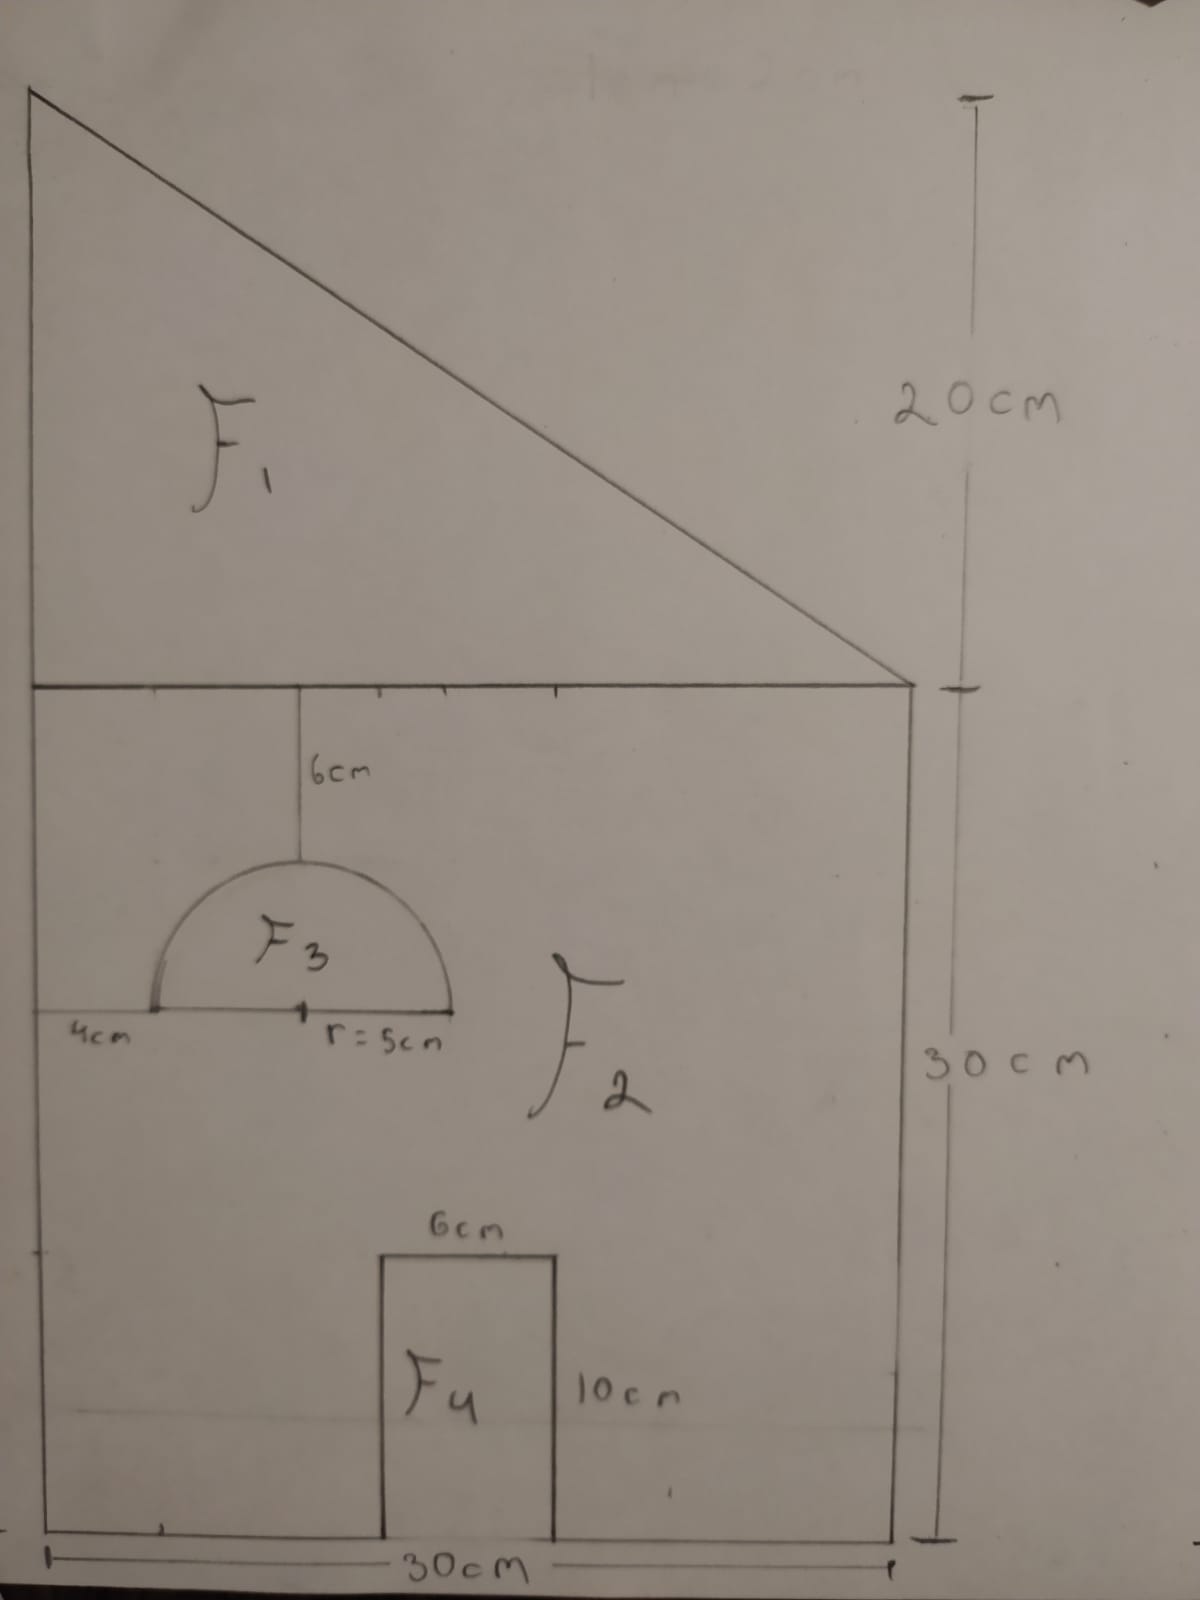 20cm
F1
6cm
F3
4cm
r=5cm
F2
30cm
6cm
F4
10cm
30cm